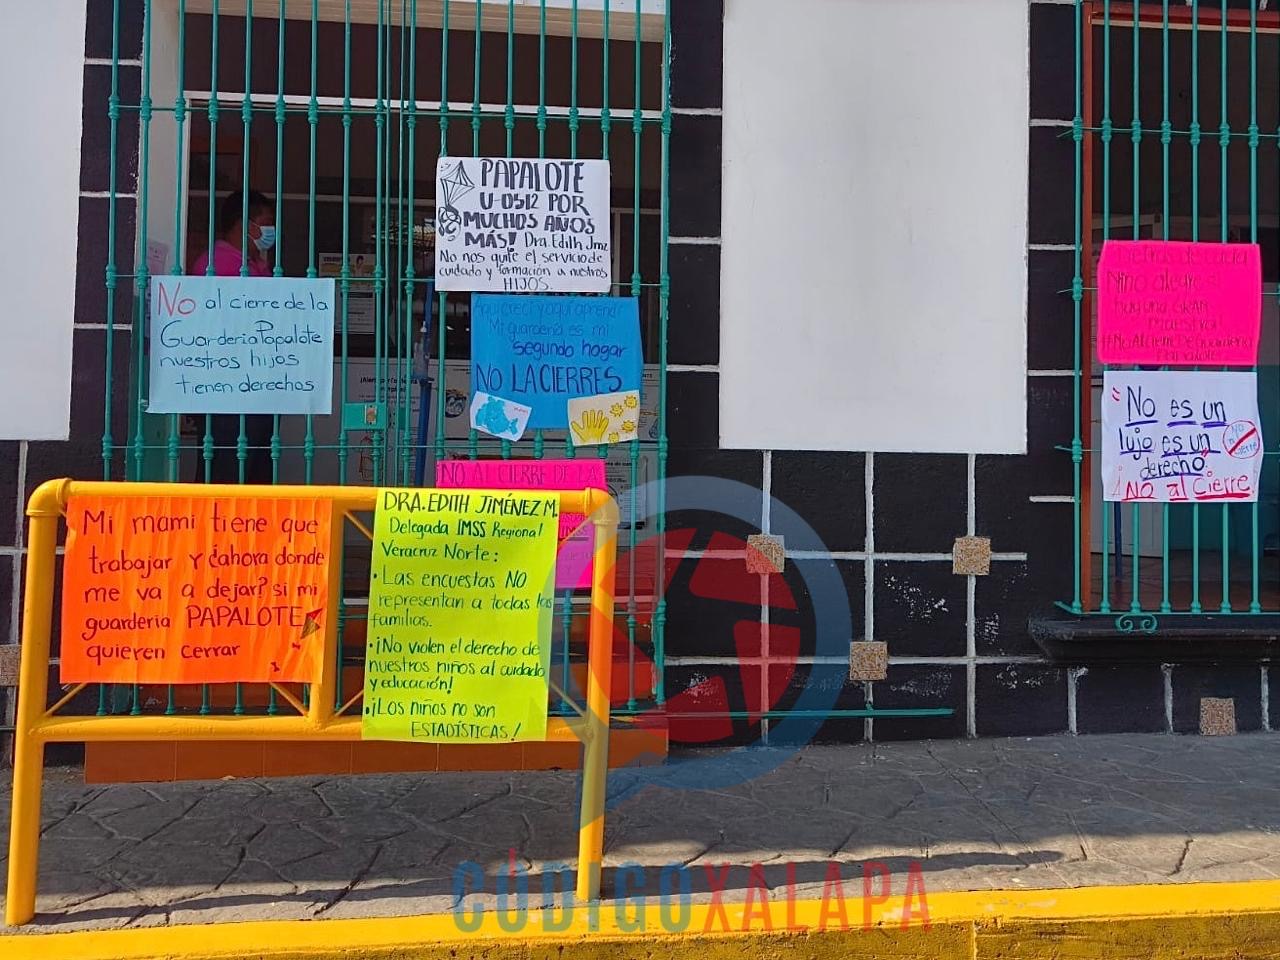 PAPALOTE
U-0512 POR
MUCHOS AÑOS
MÁS! Dra. Edith Jmz
No nos quite el servicio de
cuidado y formación a nuestros
HIJOS.
NO al cierre de la
Guarderia Papalote
nuestros hijos
tienen derechos
Aquí crecí y aquí aprendí
Mi guardería es mi
segundo hogar
NO LA CIERRES
NO AL CIERRE DE LA
Detrás de cada
Niño alegre si
hay una GRAN
maestra!
#NoAlCierreDeGuardería
Papalote
"No es un
lujo es un
derecho"
¡NO al Cierre
Mi mami tiene que
trabajar y ¿ahora donde
me va a dejar? si mi
guarderia PAPALOTE
quieren cerrar
DRA. EDITH JIMÉNEZ M.
Delegada IMSS Regional
Veracruz Norte:
• Las encuestas NO
representan a todas las
familias.
• ¡No violen el derecho de
nuestros niños al cuidado
y educación!
• ¡Los niños no son
ESTADÍSTICAS!
CÓDIGOXALAPA